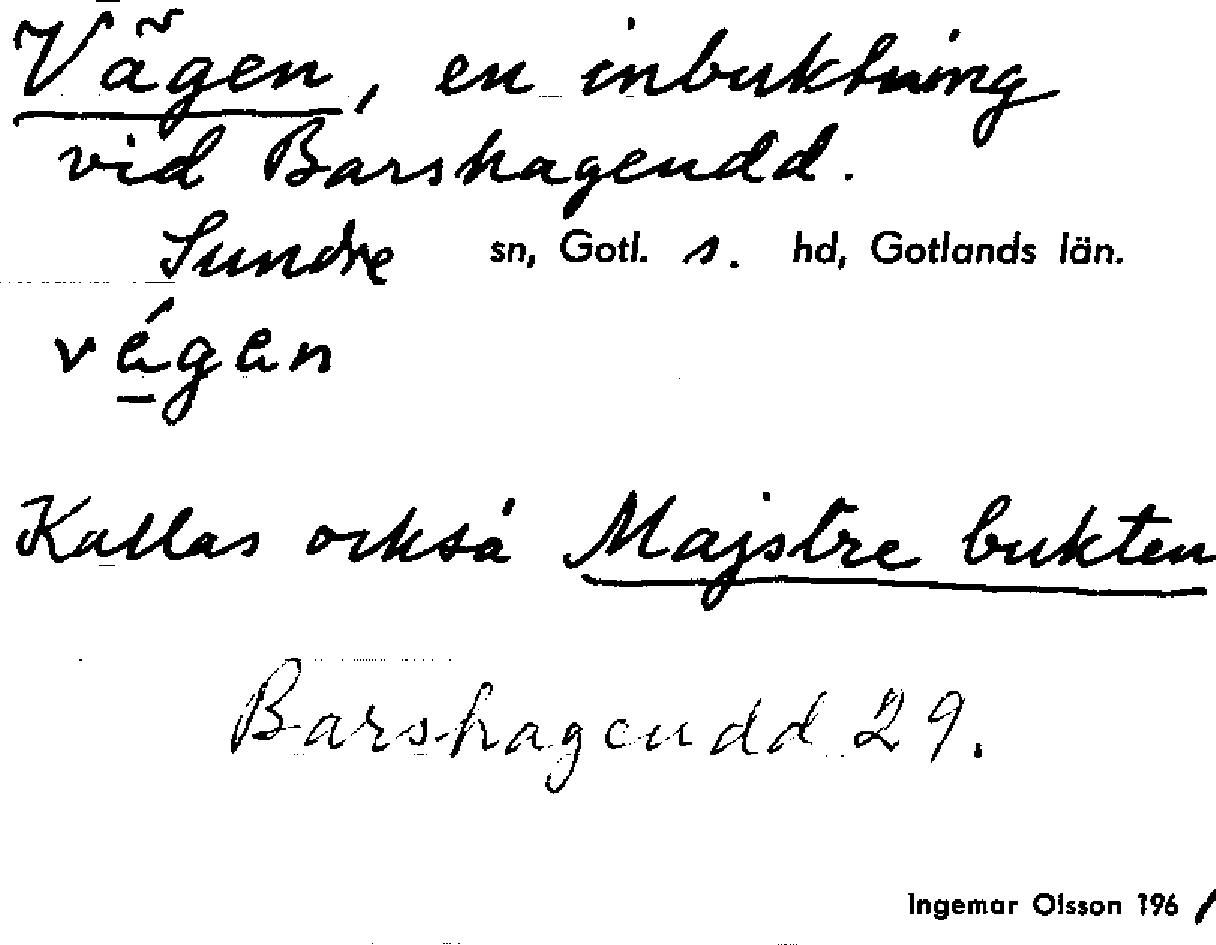 Vägen, en inbuktning
vid Barshageudd.
Sundre sn, Gotl. s. hd, Gotlands län.
végen
Kallas också Majstre bukten
Barshageudd 29.
Ingemar Olsson 1961